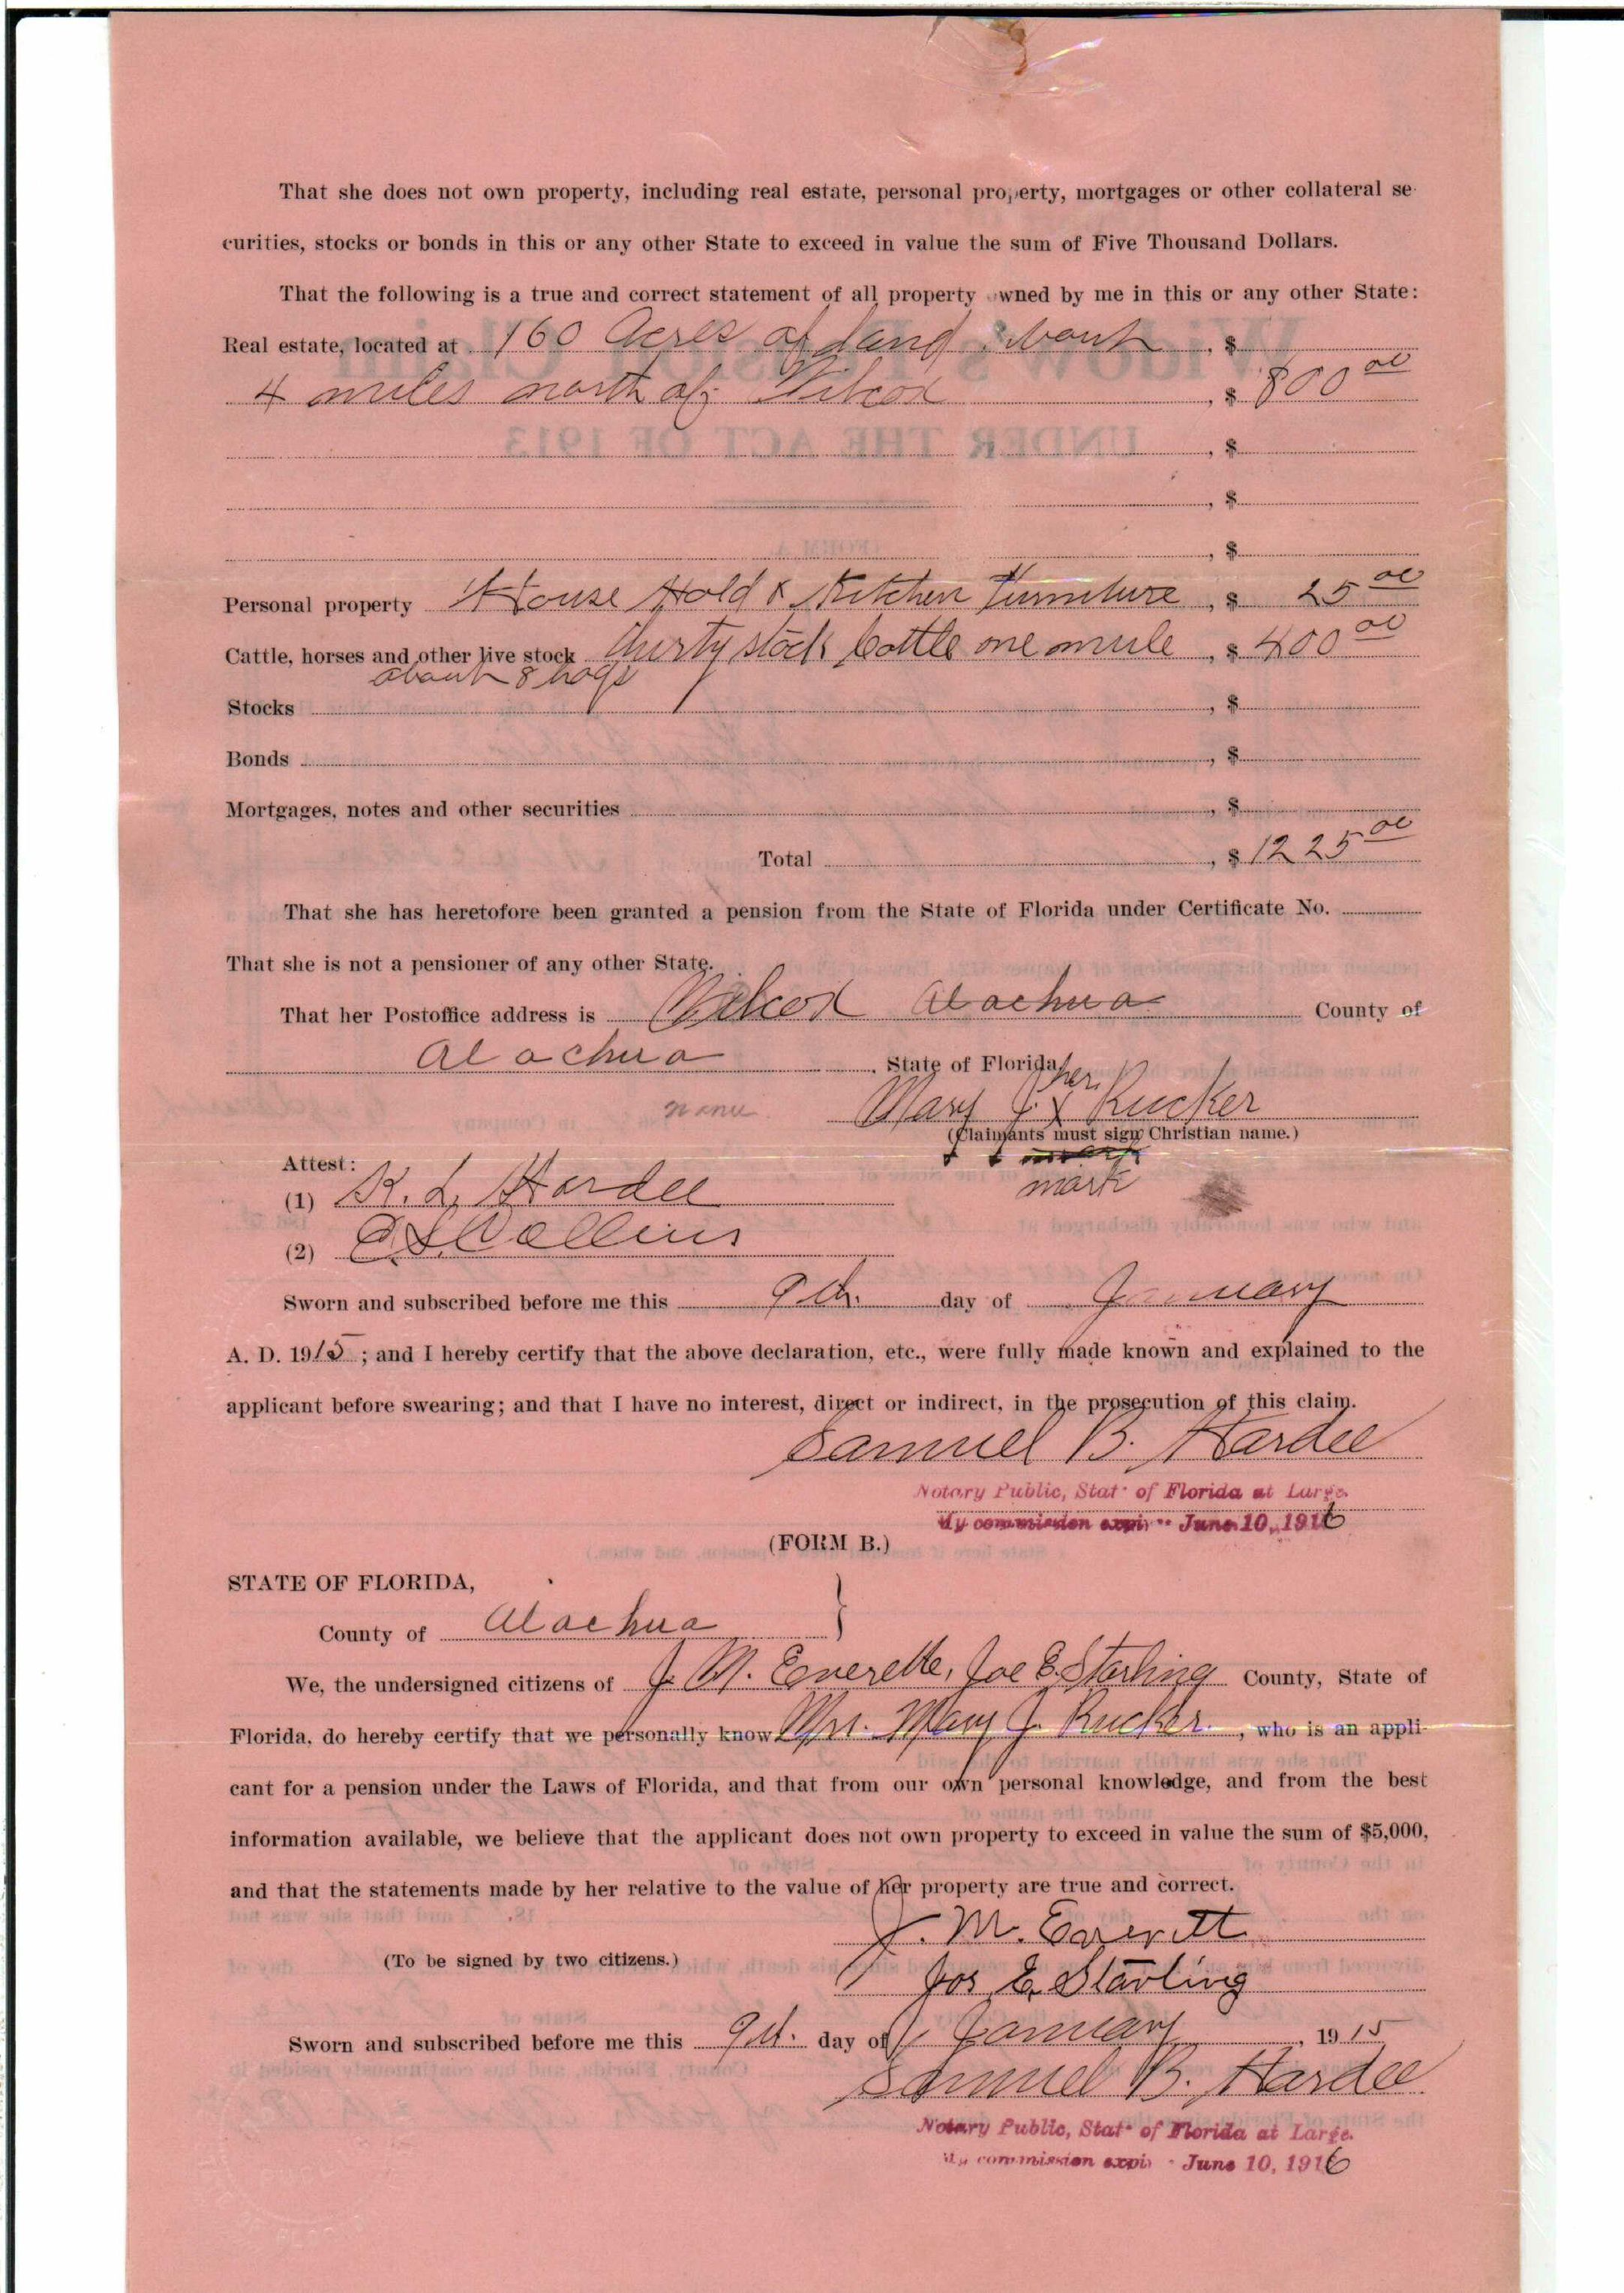 That she does not own property, including real estate, personal property, mortgages or other collateral se-
curities, stocks or bonds in this or any other State to exceed in value the sum of Five Thousand Dollars.
That the following is a true and correct statement of all property owned by me in this or any other State:
Real estate, located at 160 Acres of land about , $
4 miles north of Wilcox , $ 800 00
, $
, $
, $
Personal property House Hold & Kitchen Furniture , $ 25 00
Cattle, horses and other live stock thirty stock Cattle one mule , $ 400 00
about 8 hogs
Stocks , $
Bonds , $
Mortgages, notes and other securities , $
Total , $ 1225 00
That she has heretofore been granted a pension from the State of Florida under Certificate No.
That she is not a pensioner of any other State.
That her Postoffice address is Wilcox Alachua County of
Alachua , State of Florida.
her
Mary J. X Rucker
(Claimants must sign Christian name.)
mark
Attest:
(1) K. L. Hardee
(2) C S Collins
Sworn and subscribed before me this 9th. day of January
A. D. 1915 ; and I hereby certify that the above declaration, etc., were fully made known and explained to the
applicant before swearing; and that I have no interest, direct or indirect, in the prosecution of this claim.
Samuel B. Hardee
Notary Public, State of Florida at Large.
My commission expires June 10, 1916
(FORM B.)
STATE OF FLORIDA,
County of Alachua }
We, the undersigned citizens of J. M. Everette, Joe E. Starling County, State of
Florida, do hereby certify that we personally know Mrs. Mary J. Rucker , who is an appli-
cant for a pension under the Laws of Florida, and that from our own personal knowledge, and from the best
information available, we believe that the applicant does not own property to exceed in value the sum of $5,000,
and that the statements made by her relative to the value of her property are true and correct.
J. M. Everett
(To be signed by two citizens.)
Jos E. Starling
Sworn and subscribed before me this 9th. day of January , 1915
Samuel B. Hardee
Notary Public, State of Florida at Large.
My commission expires June 10, 1916